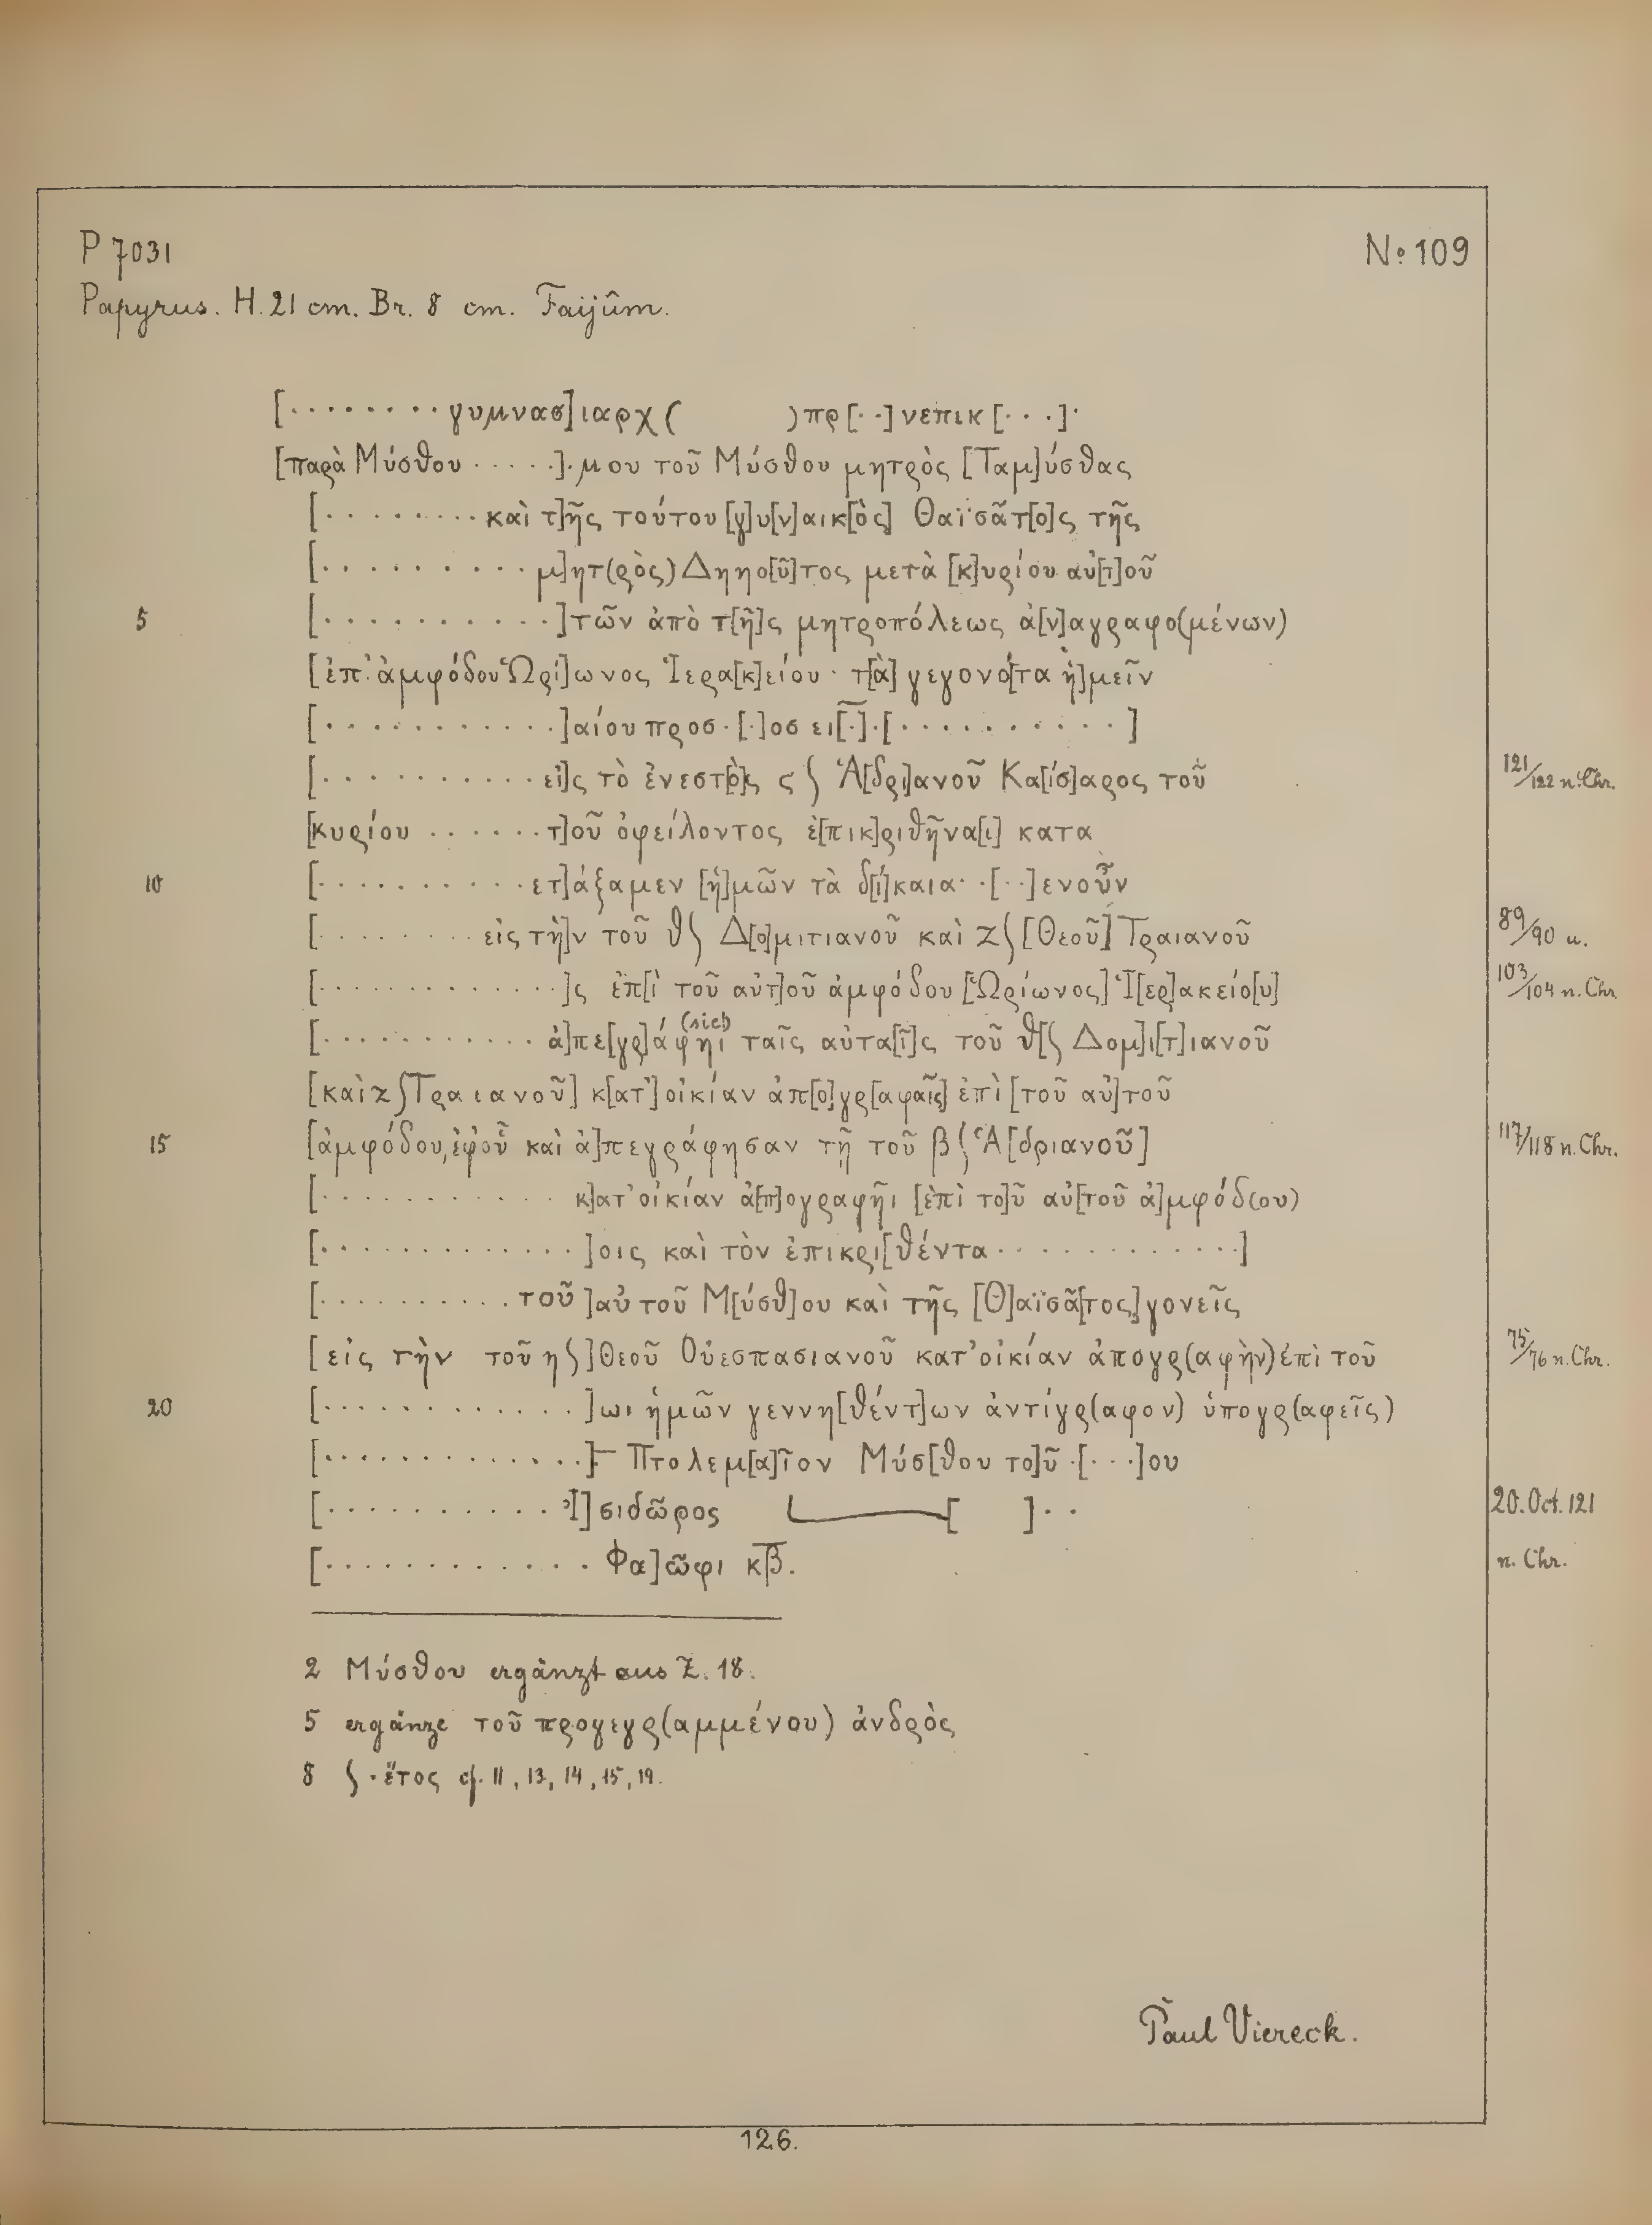 P 7031 No 109
Papyrus. H. 21 cm. Br. 8 cm. Faijûm.
[········γυμνασ]ιαρχ( )πρ[··]νεπικ[···]·
[παρὰ Μύσθου ·····]·μου τοῦ Μύσθου μητρὸς [Ταμ]ύσθας
[········καὶ τ]ῆς τούτου [γ]υ[ν]αικ[ὸς] Θαϊσᾶτ[ο]ς τῆς
[··········μ]ητ(ρὸς) Δηηο[ῦ]τος μετὰ [κ]υρίου αὐ[τ]οῦ
5 [···········]τῶν ἀπὸ τ[ῆ]ς μητροπόλεως ἀ[ν]αγραφο(μένων)
[ἐπ' ἀμφόδου Ὡρί]ωνος Ἱερα[κ]είου· τ[ὰ] γεγονό[τα ἡ]μεῖν
[···········]αίου προσ·[·]οσ ει[·]·[··········]
[··········εἰ]ς τὸ ἐνεστ[ὸ]ς ϛ∫ Ἁ[δρι]ανοῦ Κα[ίσ]αρος τοῦ 121/122 n. Chr.
[κυρίου ······τ]οῦ ὀφείλοντος ἐ[πικ]ριθῆνα[ι] κατα
10 [··········ετ]άξαμεν [ἡ]μῶν τὰ δ[ί]καια··[··]ενοῦν
[········εἰς τὴ]ν τοῦ θ∫ Δ[ο]μιτιανοῦ καὶ ζ∫ [Θεοῦ] Τραιανοῦ 89/90 u.
[·············]ς ἐπ[ὶ τοῦ αὐτ]οῦ ἀμφόδου [Ὡρίωνος] Ἱ[ερ]ακείο[υ] 103/104 n. Chr.
[···········ἀ]πε[γρ]άφηι (sic!) ταῖς αὐτα[ῖ]ς τοῦ θ[∫ Δομ]ι[τ]ιανοῦ
[καὶ ζ∫ Τραιανοῦ] κ[ατ'] οἰκίαν ἀπ[ο]γρ[αφαῖς] ἐπὶ [τοῦ αὐ]τοῦ
15 [ἀμφόδου, ἐφ' οὗ καὶ ἀ]πεγράφησαν τῇ τοῦ β∫ Ἁ[δριανοῦ] 117/118 n. Chr.
[············κ]ατ' οἰκίαν ἀ[π]ογραφῆι [ἐπὶ το]ῦ αὐ[τοῦ ἀ]μφόδ(ου)
[·············]οις καὶ τὸν ἐπικρι[θέντα············]
[··········τοῦ] αὐτοῦ Μ[ύσθ]ου καὶ τῆς [Θ]αϊσᾶ[τος] γονεῖς
[εἰς τὴν τοῦ η∫] Θεοῦ Οὐεσπασιανοῦ κατ' οἰκίαν ἀπογρ(αφὴν) ἐπὶ τοῦ 75/76 n. Chr.
20 [·············]ωι ἡμῶν γεννη[θέντ]ων ἀντίγρ(αφον) ὑπογρ(αφεῖς)
[·············]— Πτολεμ[α]ῖον Μύσ[θου το]ῦ·[···]ου
[···········Ἰ]σιδῶρος [ ]·· 20. Oct. 121
[·············Φα]ῶφι κβ. n. Chr.
2 Μύσθου ergänzt aus Z. 18.
5 ergänze τοῦ προγεγρ(αμμένου) ἀνδρὸς
8 ∫·ἔτος cf. 11, 13, 14, 15, 19.
Paul Viereck.
126.